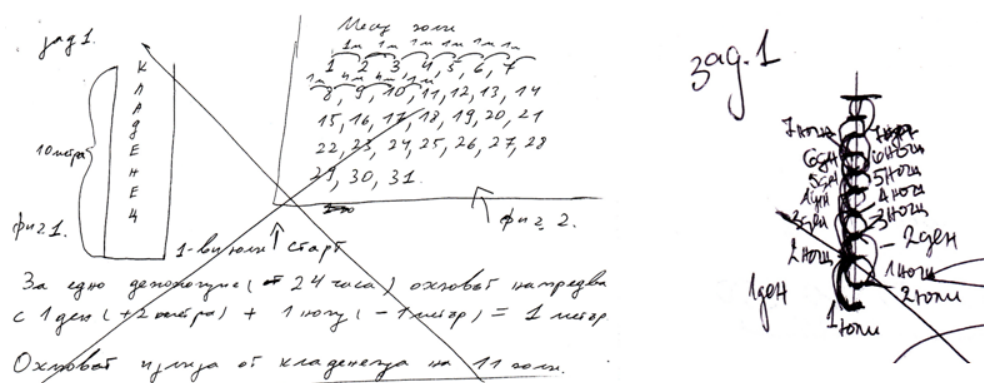 зад 1.
К
Л
А
Д
Е
Н
Е
Ц
10 метра
фиг. 1.
Месец юли
1м 1м 1м 1м 1м 1м
1 2 3 4, 5, 6, 7
1м 1м
8, 9, 10, 11, 12, 13, 14
15, 16, 17, 18, 19, 20, 21
22, 23, 24, 25, 26, 27, 28
29, 30, 31.
фиг. 2.
1-ви юли ↑ старт
За едно денонощие (24 часа) охлювът напредва
с 1 ден (+2 метра) + 1 нощ (-1 метър) = 1 метър
Охлювът излиза от кладенеца на 11 юли.
зад. 1
7 нощ
6 ден 6 нощ
5 ден 5 нощ
4 нощ
3 ден 3 нощ
- 2 ден
2 нощ 1 нощ
1 ден 2 юли
1 юли